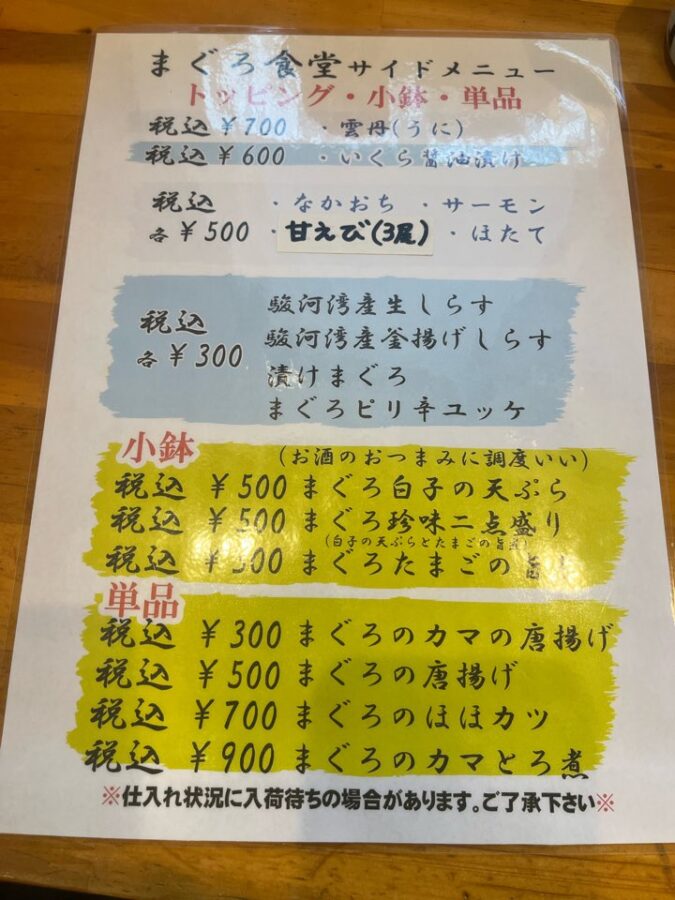 まぐろ食堂サイドメニュー
トッピング・小鉢・単品
税込￥700 ・雲丹(うに)
税込￥600 ・いくら醤油漬け
税込 ・なかおち ・サーモン
各￥500 ・甘えび(3尾) ・ほたて
駿河湾産生しらす
税込
駿河湾産釜揚げしらす
各￥300
漬けまぐろ
まぐろピリ辛ユッケ
小鉢
(お酒のおつまみに調度いい)
税込 ￥500 まぐろ白子の天ぷら
税込 ￥500 まぐろ珍味二点盛り
(白子の天ぷらとたまごの旨煮)
税込 ￥300 まぐろたまごの旨
単品
税込 ￥300 まぐろのカマの唐揚げ
税込 ￥500 まぐろの唐揚げ
税込 ￥700 まぐろのほほカツ
税込 ￥900 まぐろのカマとろ煮
※仕入れ状況に入荷待ちの場合があります。ご了承下さい※